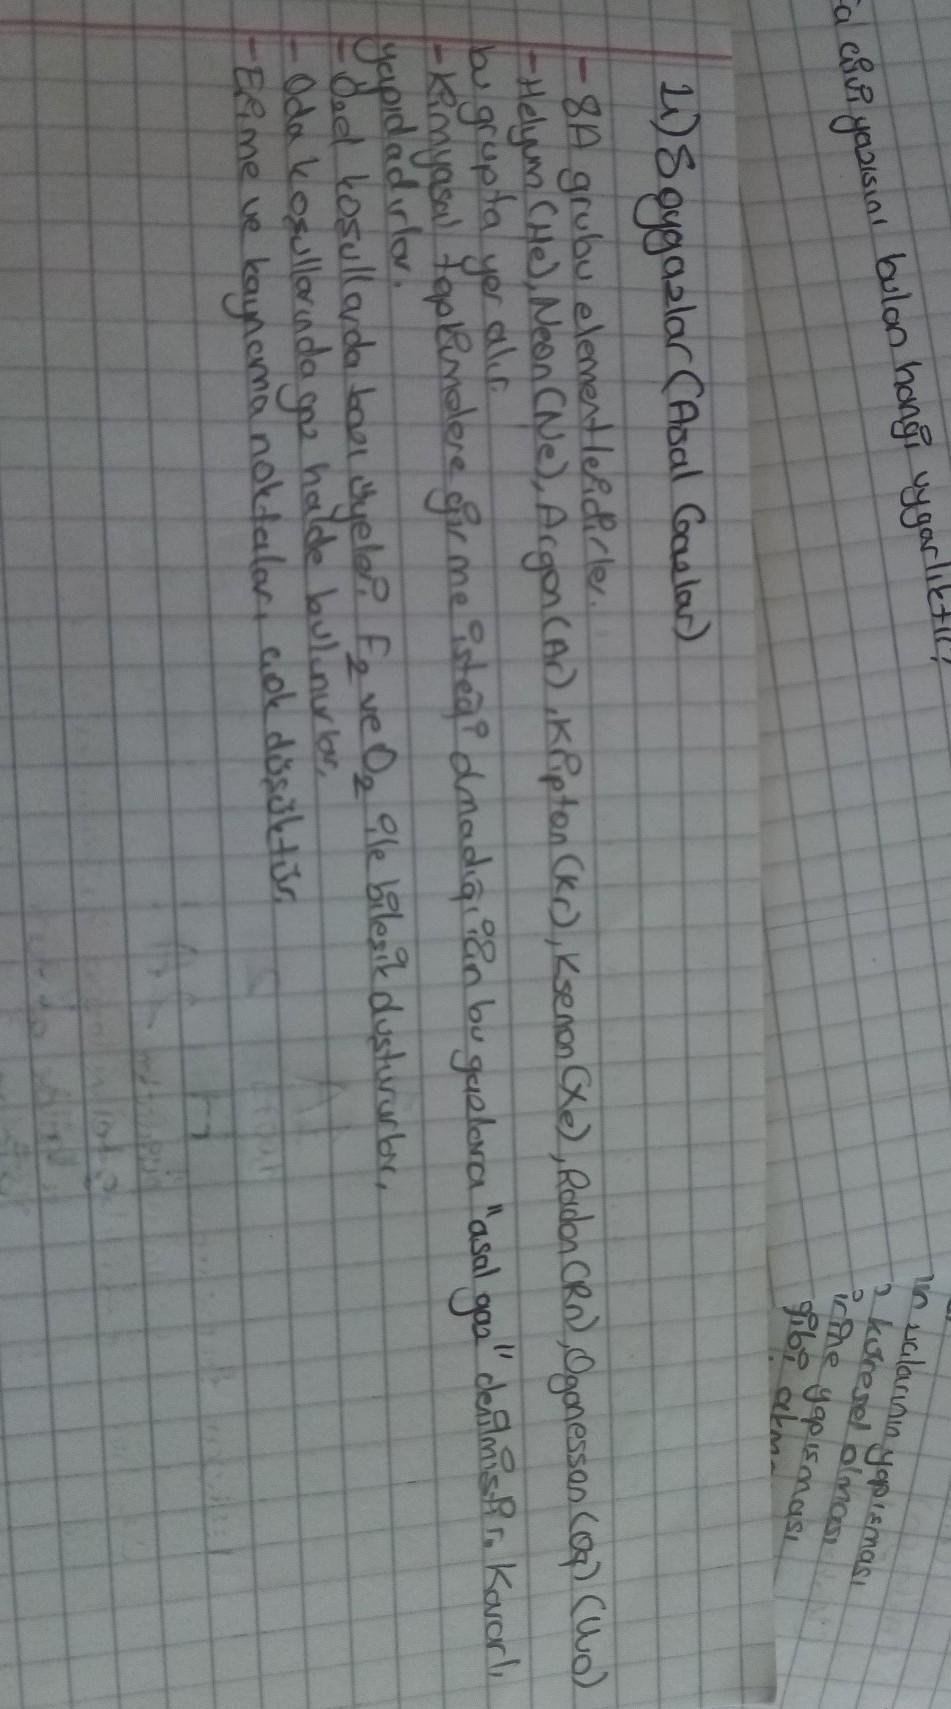 1) Soygazlar (Asal Gazlar)
- 8A grubu elementleridirler.
- Helyum (He), Neon (Ne), Argon (Ar), Kripton (Kr), Ksenon (Xe), Radon (Rn), Oganesson (Og) (Uuo)
bu grupta yer alır.
- Kimyasal tepkimelere girme isteği olmadığı için bu gazlara "asal gaz" denilmiştir. Kararlı
yapıdadırlar.
- Özel koşullarda bazı üyeleri F2 ve O2 ile bileşik oluştururlar.
- Oda koşullarında gaz halde bulunurlar.
- Erime ve kaynama noktaları çok düşüktür.
çivi yazısını bulan hangi uygarlıktır?
yapışması
küresel olması
yapışması
gibi